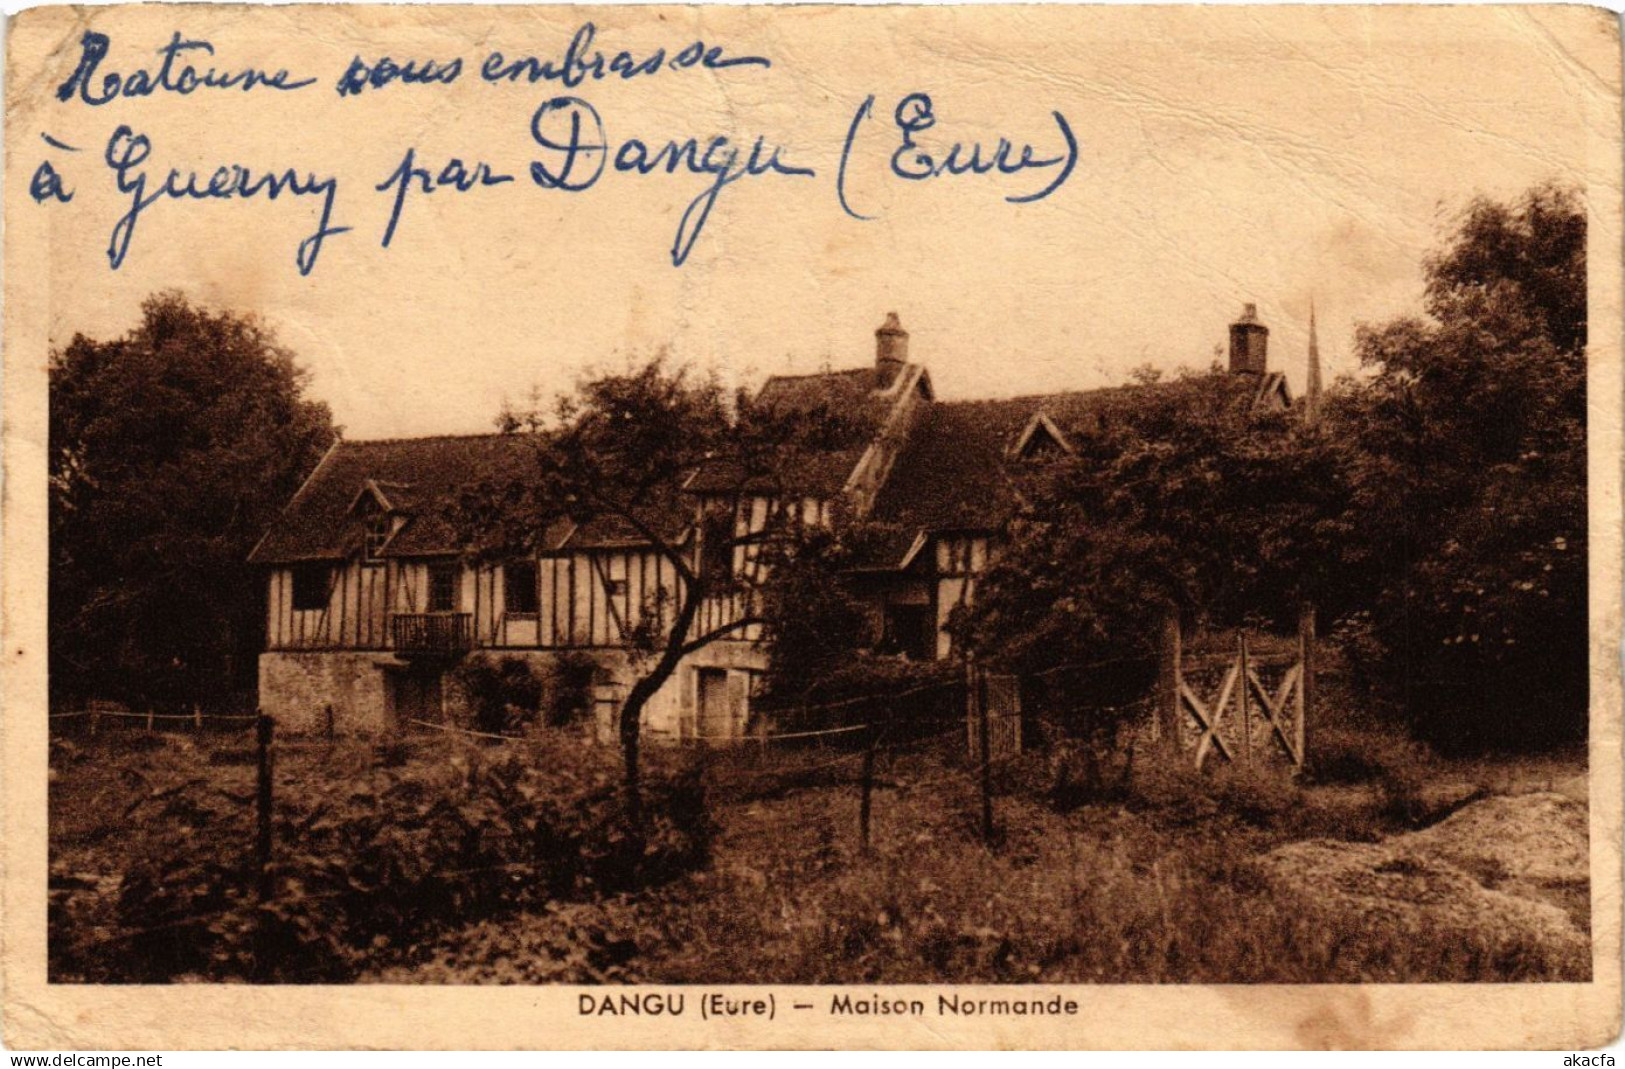 Ratoune vous embrasse
à Guerny par Dangu (Eure)
DANGU (Eure) — Maison Normande
akacfa